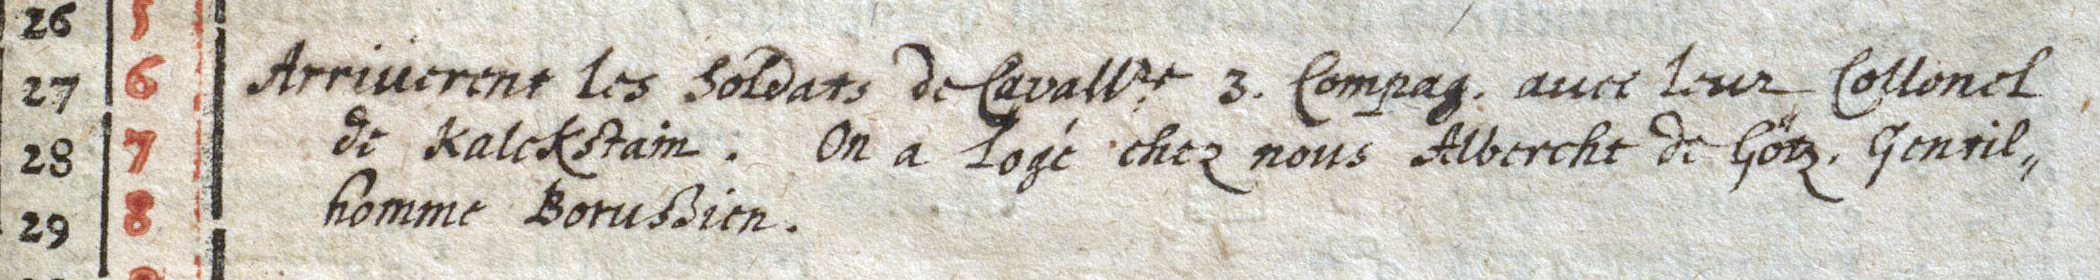 26 5
27 6 Arriuerent les Soldats de Cavall.re 3. Compag. auec leur Collonel
28 7 de Kalckstain. On a logé chez nous Albercht de Götz. Gentil„
29 8 homme Borußien.